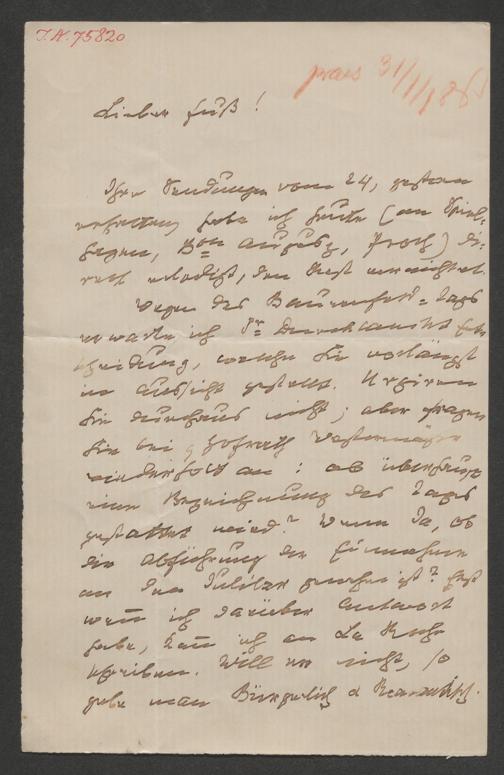 I.N. 75820
praes 31/1/186
Lieber Fuß!
Ihre Sendungen vom 24, gestern
erhalten, habe ich heute (an Spiel-
hagen, Bon August, Proch) di-
rect erledigt, den Rest vernichtet.
Wegen des Bauernfeld=Tags
erwarte ich Sr Durchlaucht Ent
scheidung, welche Sie vorlängst
in Aussicht gestellt. Urgiren
Sie durchaus nicht; aber fragen
Sie bei Hofrath
wiederholt an: ob überhaupt
eine Bezeichnung des Tages
gestattet wird? Wenn Ja, ob
die Abführung der Einnahme
an den Jubilar gewiß ist? Erst
wenn ich darüber Antwort
habe, kann ich an La Roche
schreiben. Will er nicht, so
gebe man Bürgerlich u Romantisch.